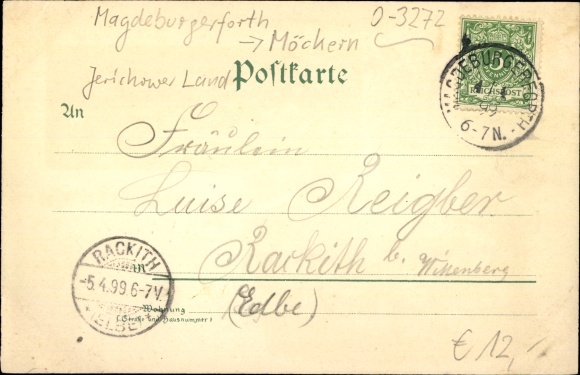 Magdeburgerforth
→ Möckern
O-3272
Jerichower Land
Postkarte
5
REICHSPOST
MAGDEBURGERFORTH
99
6-7N.
An
Fräulein
Luise Reigber
Rackith b. Wittenberg
(Elbe)
in
Wohnung
(Straße und Hausnummer)
RACKITH
-5.4.99 6-7V.
(ELBE)
€ 12,-